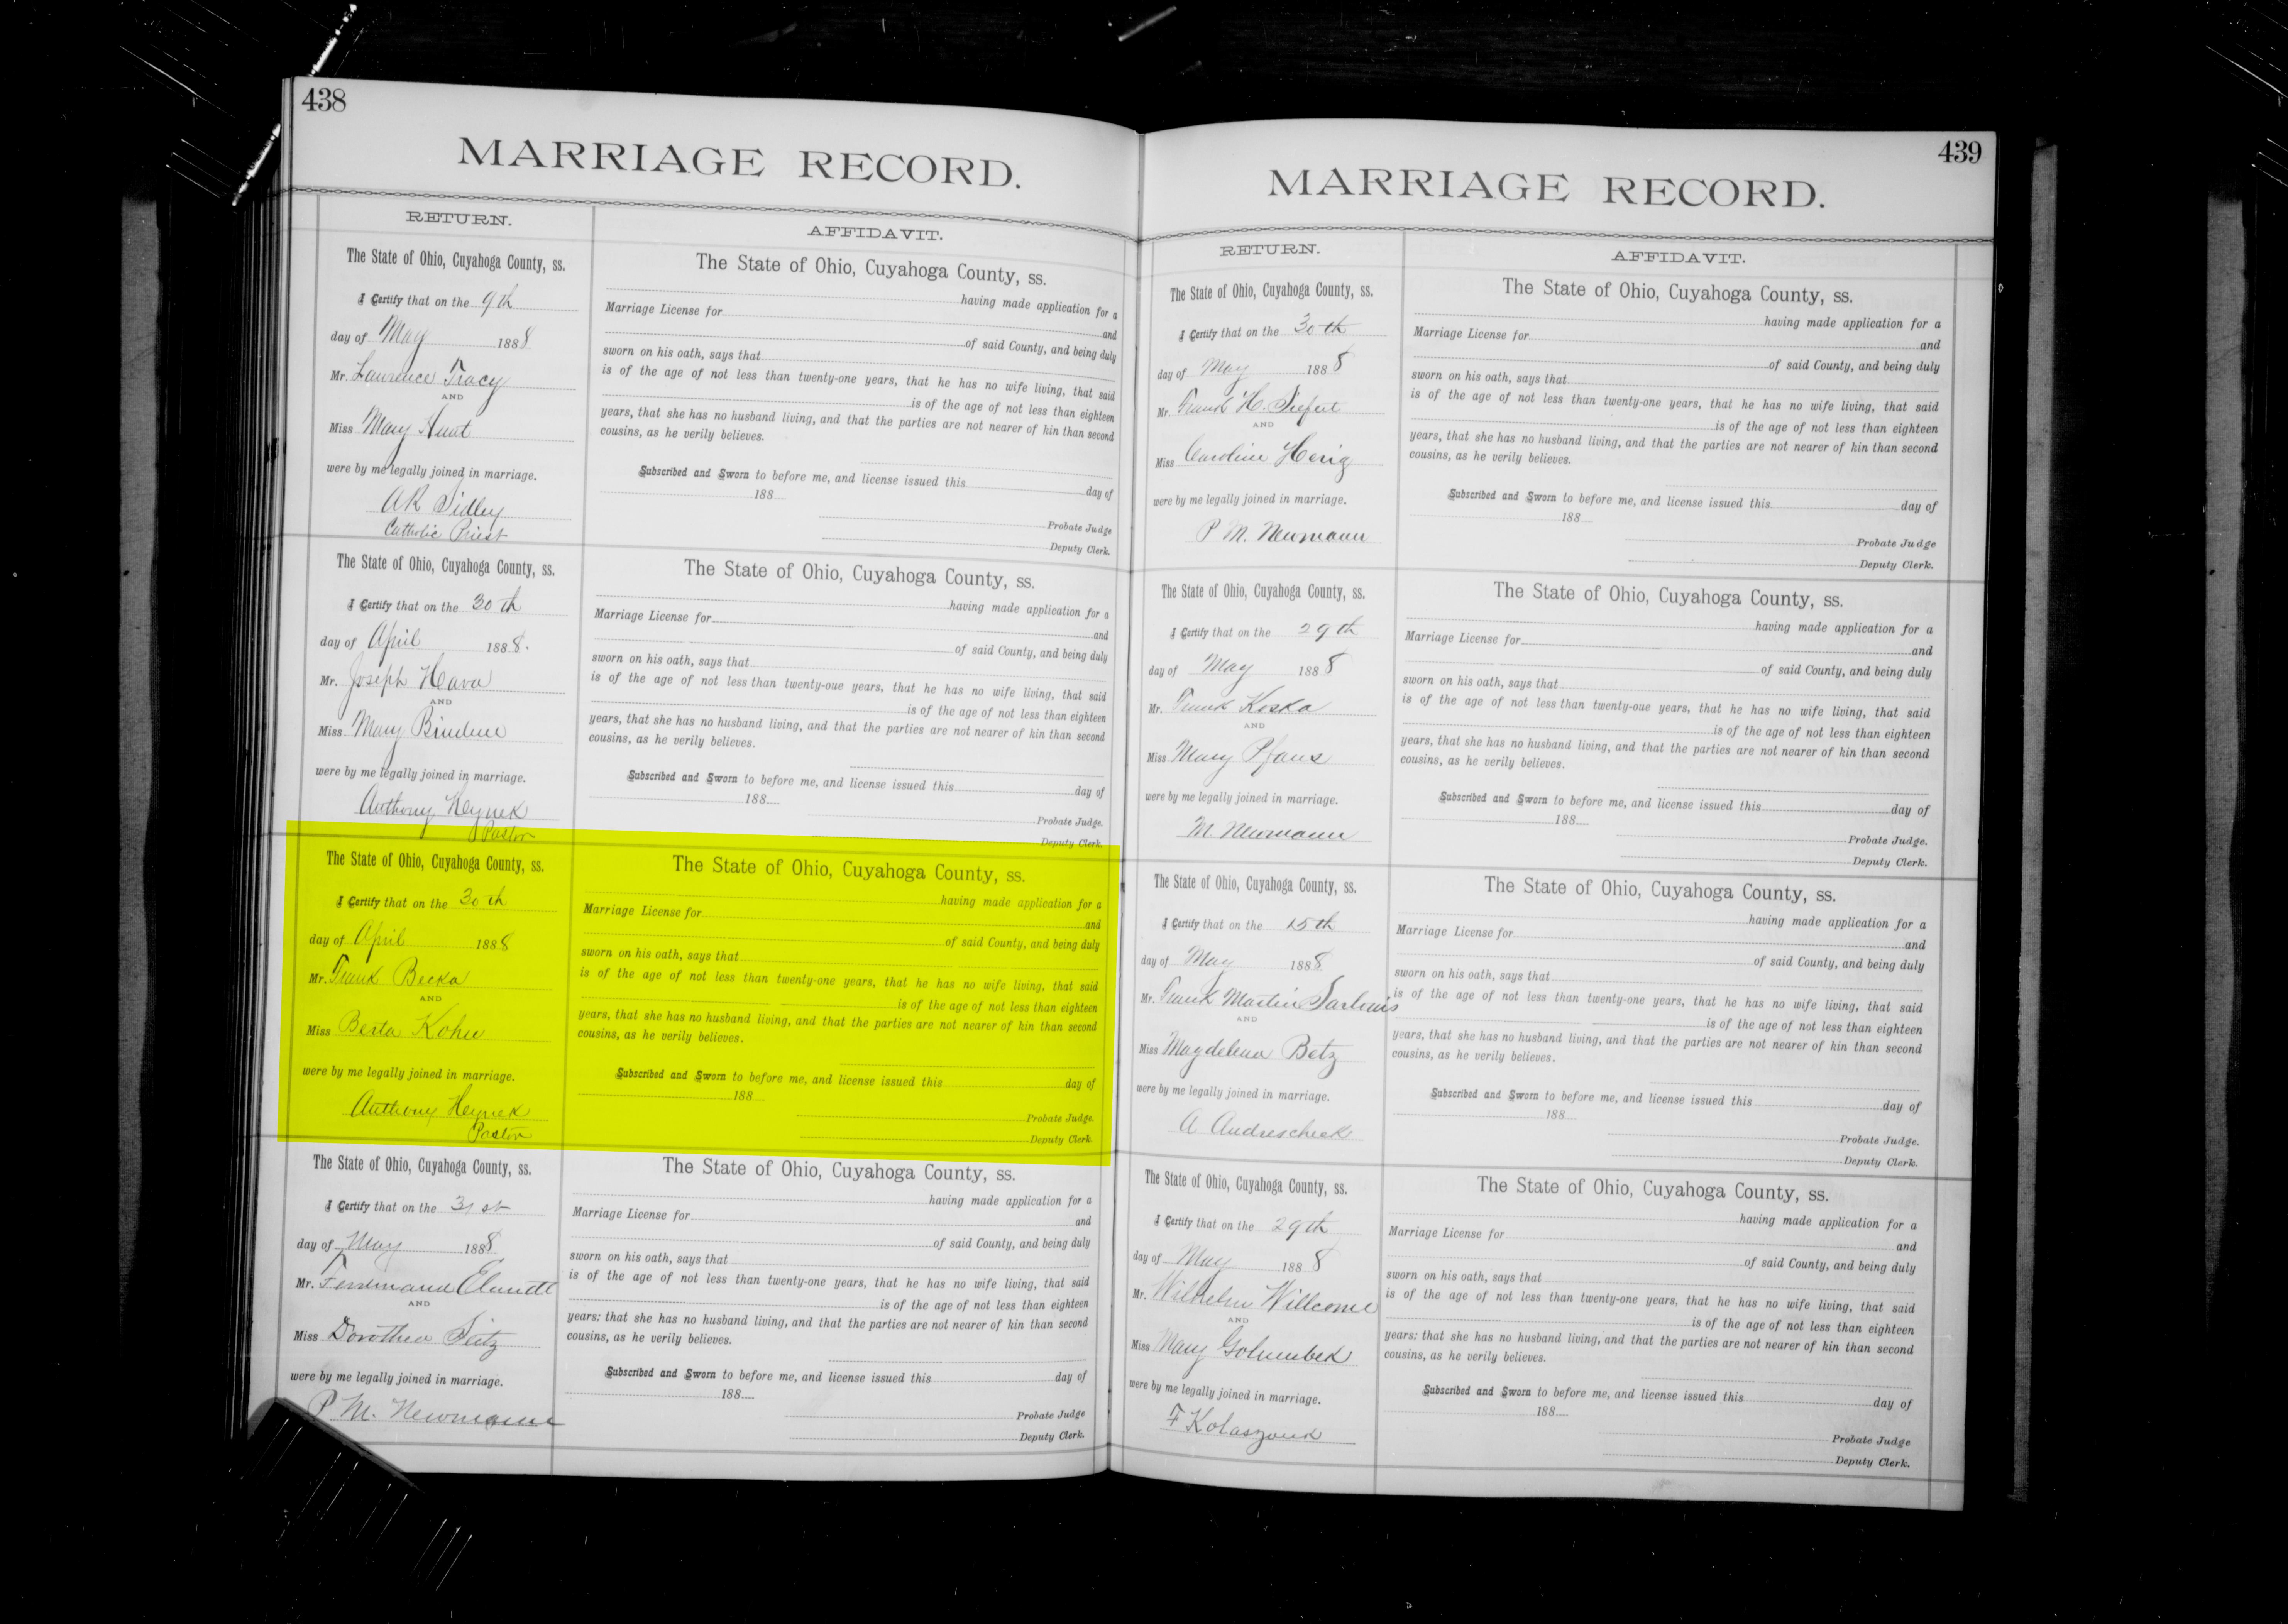 438
MARRIAGE RECORD.
RETURN.
AFFIDAVIT.
The State of Ohio, Cuyahoga County, ss.
I Certify that on the 9th
day of May 1888
Mr. Laurence Tracy
AND
Miss Mary Hunt
were by me legally joined in marriage.
AR Sidley
Catholic Priest
The State of Ohio, Cuyahoga County, ss.
having made application for a
Marriage License for
and
of said County, and being duly
sworn on his oath, says that
is of the age of not less than twenty-one years, that he has no wife living, that said
is of the age of not less than eighteen
years, that she has no husband living, and that the parties are not nearer of kin than second
cousins, as he verily believes.
Subscribed and Sworn to before me, and license issued this day of
188
Probate Judge
Deputy Clerk.
The State of Ohio, Cuyahoga County, ss.
I Certify that on the 30th
day of April 1888.
Mr. Joseph Hava
AND
Miss Mary
were by me legally joined in marriage.
Anthony Hynek
Pastor
The State of Ohio, Cuyahoga County, ss.
having made application for a
Marriage License for
and
of said County, and being duly
sworn on his oath, says that
is of the age of not less than twenty-oue years, that he has no wife living, that said
is of the age of not less than eighteen
years, that she has no husband living, and that the parties are not nearer of kin than second
cousins, as he verily believes.
Subscribed and Sworn to before me, and license issued this day of
188
Probate Judge.
Deputy Clerk.
The State of Ohio, Cuyahoga County, ss.
I Certify that on the 30th
day of April 1888
Mr. Frank Becka
AND
Miss Berta Kohn
were by me legally joined in marriage.
Anthony Hynek
Pastor
The State of Ohio, Cuyahoga County, ss.
having made application for a
Marriage License for
and
of said County, and being duly
sworn on his oath, says that
is of the age of not less than twenty-one years, that he has no wife living, that said
is of the age of not less than eighteen
years, that she has no husband living, and that the parties are not nearer of kin than second
cousins, as he verily believes.
Subscribed and Sworn to before me, and license issued this day of
188
Probate Judge.
Deputy Clerk.
The State of Ohio, Cuyahoga County, ss.
I Certify that on the 31st
day of May 1888
Mr. Ferdinand
AND
Miss Dorothea Seitz
were by me legally joined in marriage.
P M. Newmann
The State of Ohio, Cuyahoga County, ss.
having made application for a
Marriage License for
and
of said County, and being duly
sworn on his oath, says that
is of the age of not less than twenty-one years, that he has no wife living, that said
is of the age of not less than eighteen
years: that she has no husband living, and that the parties are not nearer of kin than second
cousins, as he verily believes.
Subscribed and Sworn to before me, and license issued this day of
188
Probate Judge
Deputy Clerk.
439
MARRIAGE RECORD.
RETURN.
AFFIDAVIT.
The State of Ohio, Cuyahoga County, ss.
I Certify that on the 30th
day of May 1888
Mr. Frank H. Siefert
AND
Miss Caroline Herig
were by me legally joined in marriage.
P M. Newmann
The State of Ohio, Cuyahoga County, ss.
having made application for a
Marriage License for
and
of said County, and being duly
sworn on his oath, says that
is of the age of not less than twenty-one years, that he has no wife living, that said
is of the age of not less than eighteen
years, that she has no husband living, and that the parties are not nearer of kin than second
cousins, as he verily believes.
Subscribed and Sworn to before me, and license issued this day of
188
Probate Judge
Deputy Clerk.
The State of Ohio, Cuyahoga County, ss.
I Certify that on the 29th
day of May 1888
Mr. Frank Koska
AND
Miss Mary Pfaus
were by me legally joined in marriage.
M. Newmann
The State of Ohio, Cuyahoga County, ss.
having made application for a
Marriage License for
and
of said County, and being duly
sworn on his oath, says that
is of the age of not less than twenty-oue years, that he has no wife living, that said
is of the age of not less than eighteen
years, that she has no husband living, and that the parties are not nearer of kin than second
cousins, as he verily believes.
Subscribed and Sworn to before me, and license issued this day of
188
Probate Judge.
Deputy Clerk.
The State of Ohio, Cuyahoga County, ss.
I Certify that on the 15th
day of May 1888
Mr. Frank Martin Sarlouis
AND
Miss Magdelena Betz
were by me legally joined in marriage.
A Andrescheck
The State of Ohio, Cuyahoga County, ss.
having made application for a
Marriage License for
and
of said County, and being duly
sworn on his oath, says that
is of the age of not less than twenty-one years, that he has no wife living, that said
is of the age of not less than eighteen
years, that she has no husband living, and that the parties are not nearer of kin than second
cousins, as he verily believes.
Subscribed and Sworn to before me, and license issued this day of
188
Probate Judge.
Deputy Clerk.
The State of Ohio, Cuyahoga County, ss.
I Certify that on the 29th
day of May 1888
Mr. Wilhelm Willcome
AND
Miss Mary Golumbek
were by me legally joined in marriage.
F Kolaszouk
The State of Ohio, Cuyahoga County, ss.
having made application for a
Marriage License for
and
of said County, and being duly
sworn on his oath, says that
is of the age of not less than twenty-one years, that he has no wife living, that said
is of the age of not less than eighteen
years: that she has no husband living, and that the parties are not nearer of kin than second
cousins, as he verily believes.
Subscribed and Sworn to before me, and license issued this day of
188
Probate Judge
Deputy Clerk.